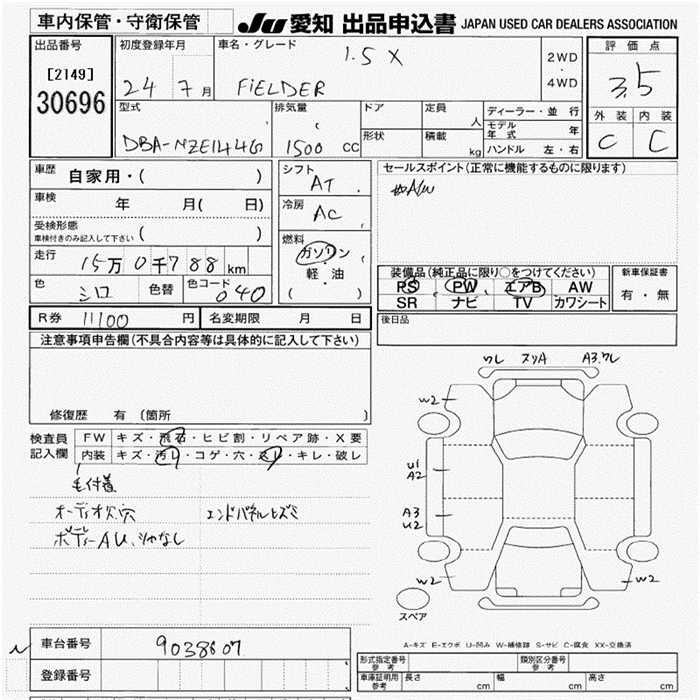 車内保管・守衛保管
JU 愛知 出品申込書 JAPAN USED CAR DEALERS ASSOCIATION
出品番号
[2149]
30696
初度登録年月
24 7月
車名・グレード
1.5 X
FIELDER
2WD
・
4WD
評価点
3.5
外装 内装
C C
型式
DBA-NZE144G
排気量
1500 cc
ドア
形状
定員
人
積載
kg
ディーラー・並行
モデル年式 年
ハンドル 左・右
車歴 自家用・( )
車検 年 月( 日)
受検形態
車検付きのみ記入して下さい ( )
走行 15万0千788km
色 シロ 色替 色コード 040
シフト
AT
冷房
AC
燃料
ガソリン
・
軽・油
( )
セールスポイント(正常に機能するものに限ります)
装備品(純正品に限り○をつけてください)
PS PW エアB AW
SR ナビ TV カワシート
新車保証書
有・無
R券 11100 円 名変期限 月 日
後日品
注意事項申告欄(不具合内容等は具体的に記入して下さい)
修復歴 有(箇所 )
検査員
記入欄
FW キズ・飛石・ヒビ割・リペア跡・X要
内装 キズ・汚レ・コゲ・穴・スレ・キレ・破レ
毛付着
オーディオ欠穴 エンドパネルヒズミ
ボデーAU、シャなし
ワレ スリA A3.ワレ
W2
U1
A2
A3
U2
W2
W2
スペア
A-キズ E-エクボ U-凹み W-補修跡 S-サビ C-腐食 XX-交換済
車台番号 9038607
登録番号
形式指定番号
参考
類別区分番号
参考
車庫証明用
参考
長さ cm 幅 cm 高さ cm